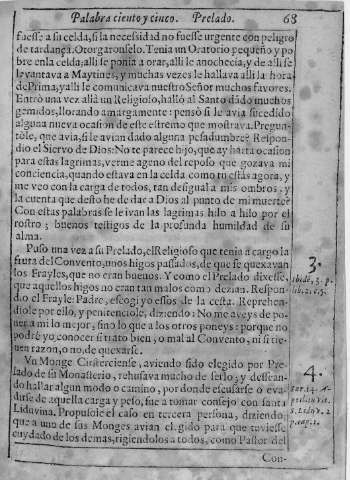 Palabra ciento y cinco. Prelado. 68
fuesse a su celda, si la necesidad no fuesse urgente con peligro
de tardança. Otorgaronselo. Tenia un Oratorio pequeño y po
bre en la celda; alli se ponia a orar, alli le anochecia, y de alli se
levantava a Maytines, y muchas vezes le hallava alli la hora
de Prima, y alli le comunicava nuestro Señor muchos favores.
Entrò una vez allà un Religioso, hallò al Santo dãdo muchos
gemidos, llorando amargamente: pensò si le avia sucedido
alguna nueva ocasion de este estremo que mostrava. Pregun-
tòle, que avia, si le avian dado alguna pesadumbre? Respon-
dio el Siervo de Dios: No te parece hijo, que ay harta ocasion
para estas lagrimas, verme ageno del reposo que gozava mi
conciencia, quando estava en la celda como tu estàs agora, y
me veo con la carga de todos, tan desigual a mis ombros, y
la cuenta que desto he de dar a Dios al punto de mi muerte?
Con estas palabras se le ivan las lagrimas hilo a hilo por el
rostro; buenos testigos de la profunda humildad de su
alma.
Puso una vez a su Prelado, el Religioso que tenia a cargo la
fruta del Convento, unos higos passados, de que se quexavan
los Frayles, que no eran buenos. Y como el Prelado dixesse,
que aquellos higos no eran tan malos como dezian. Respon-
dio el Frayle: Padre, escogi yo essos de la cesta. Reprehen-
diòle por ello, y penitenciòle, diziendo: No me aveys de po-
ner a mi lo mejor, sino lo que a los otros poneys: porque no
podrè yo conocer si trato bien, o mal al Convento, ni si tie-
nen razon, o no, de quexarse.
3.
Vn Monge Cisterciense, aviendo sido elegido por Pre-
lado de su Monasterio, rehusava mucho de serlo; y dessean-
do hallar algun modo o camino, por donde escusarse o eva-
dirse de aquella carga y peso, fue a tomar consejo con santa
Liduvina. Propusole el caso en tercera persona, diziendo:
que a uno de sus Monges avian elegido para que tuviesse
cuydado de los demas, rigiendolos a todos, como Pastor del
4.
Con-